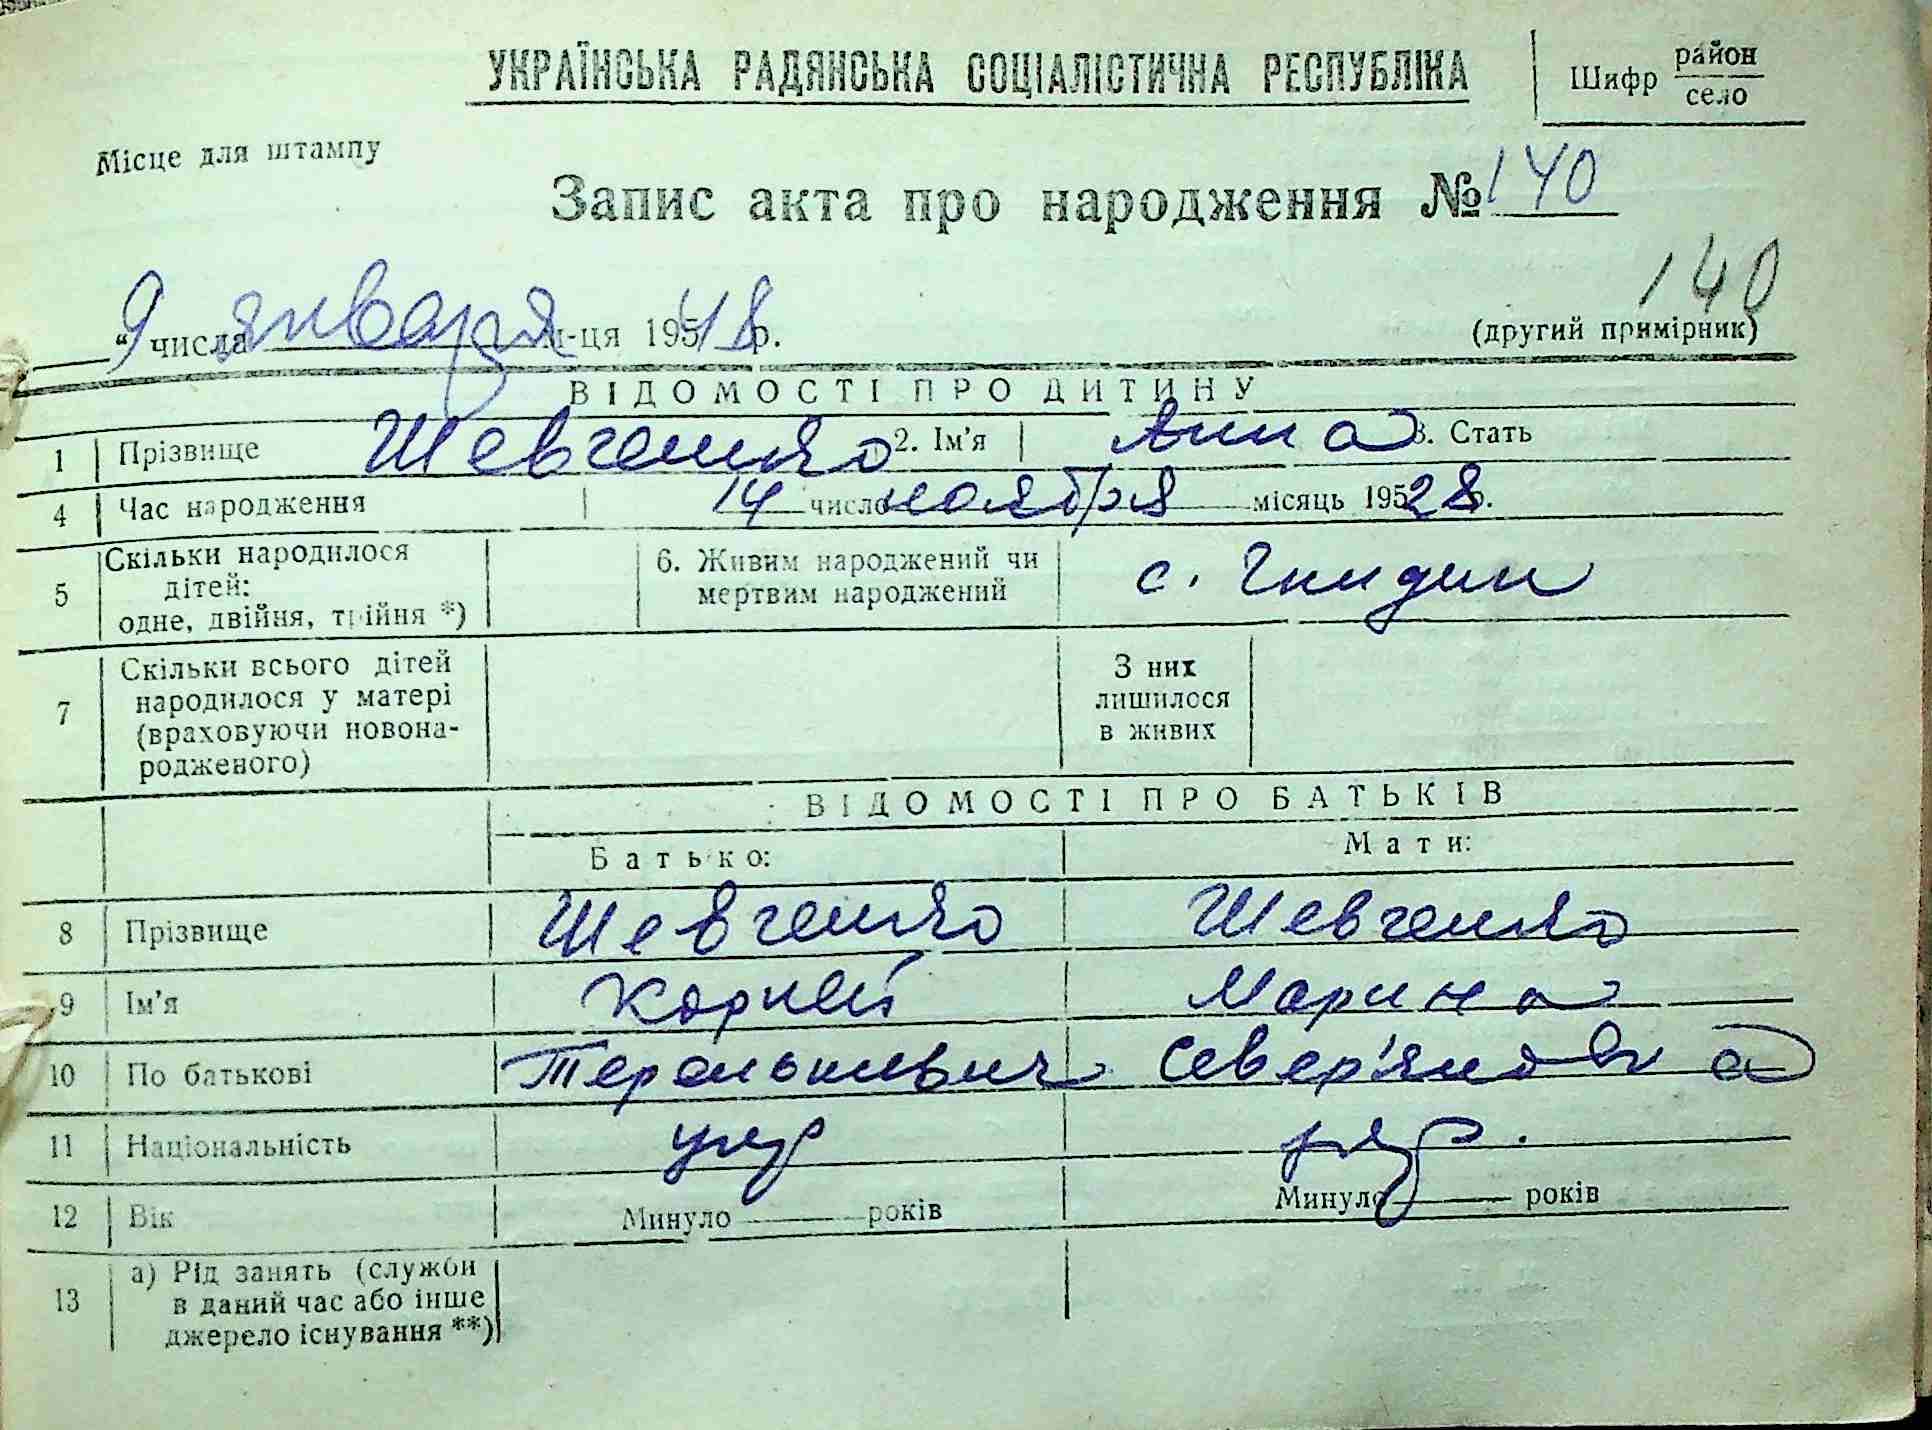 УКРАЇНСЬКА РАДЯНСЬКА СОЦІАЛІСТИЧНА РЕСПУБЛІКА
Шифр район
село
Місце для штампу
Запис акта про народження № 140
140
"9" числа января м-ця 195 48 р.
(другий примірник)
ВІДОМОСТІ ПРО ДИТИНУ
1 Прізвище Шевченко 2. Ім'я Анна 3. Стать
4 Час народження 14 число ноября місяць 195 28 р.
5 Скільки народилося дітей: одне, двійня, трійня *) 6. Живим народжений чи мертвим народжений с. Гнидин
7 Скільки всього дітей народилося у матері (враховуючи новона-родженого) З них лишилося в живих
ВІДОМОСТІ ПРО БАТЬКІВ
Батько: Мати:
8 Прізвище Шевченко Шевченко
9 Ім'я Корній Марина
10 По батькові Терентьевич Север'яновна
11 Національність укр укр.
12 Вік Минуло років Минуло років
13 а) Рід занять (служби в даний час або інше джерело існування **)